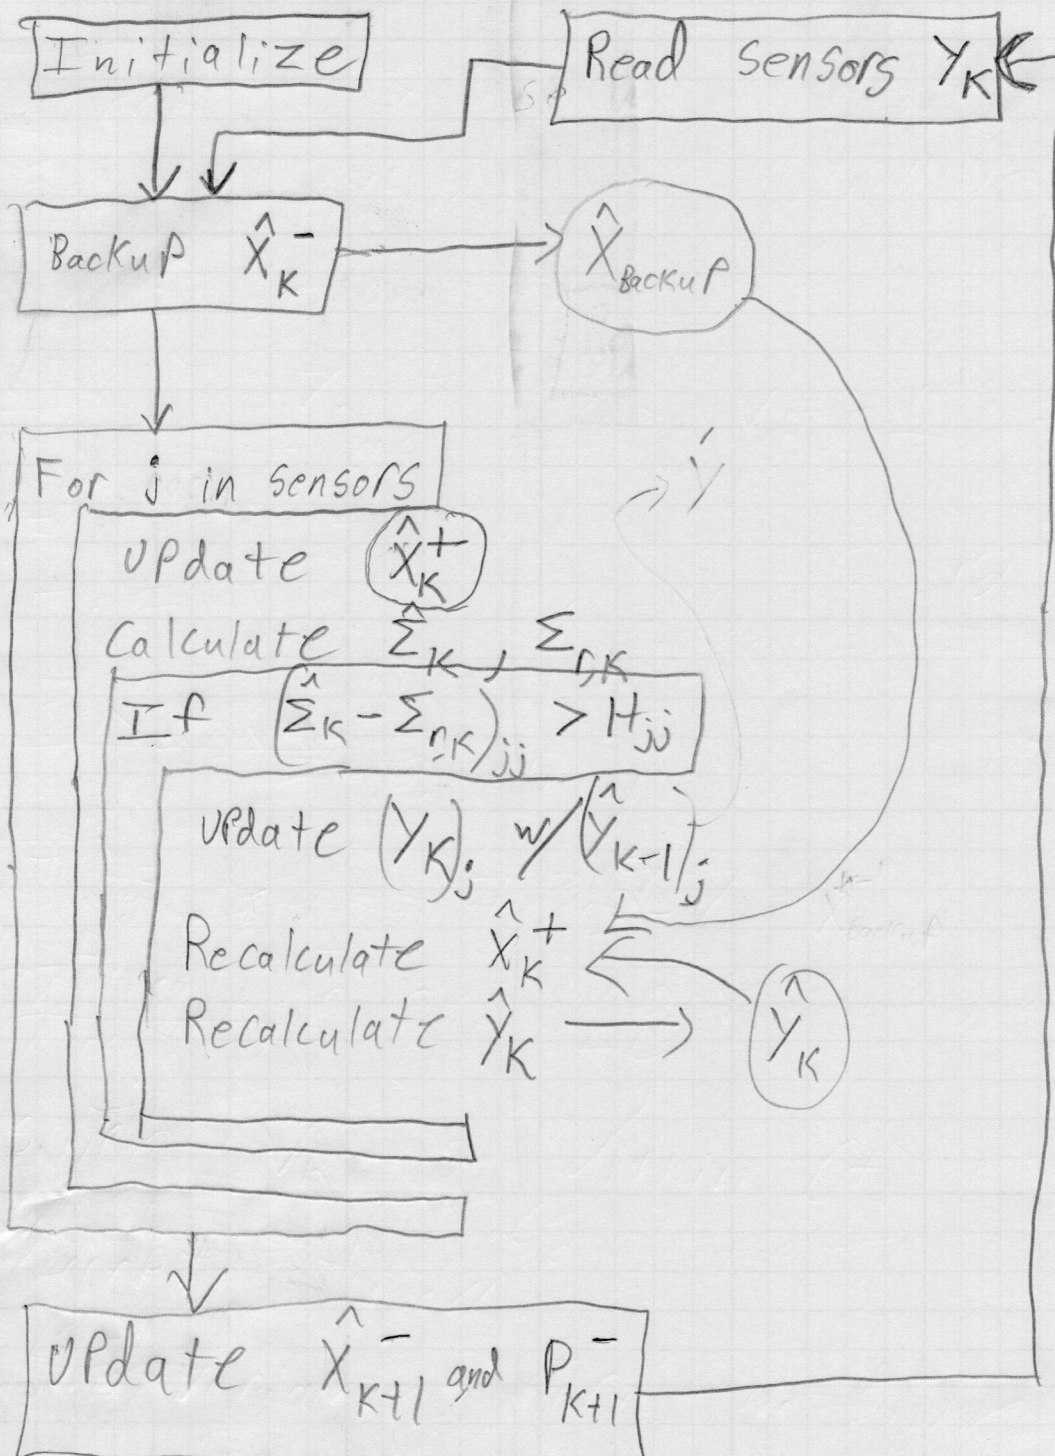 Initialize
Read sensors Y_K
Backup X̂_K^-
X̂_Backup
For j in sensors
Ý
Update X̂_K^+
Calculate Σ̂_K, Σ_{r,K}
If (Σ̂_K - Σ_{r,K})_{jj} > H_{jj}
Update (Y_K)_j w/ (Ŷ_{K-1})_j
Recalculate X̂_K^+
Recalculate Ŷ_K
Ŷ_K
Update X̂_{K+1}^- and P_{K+1}^-